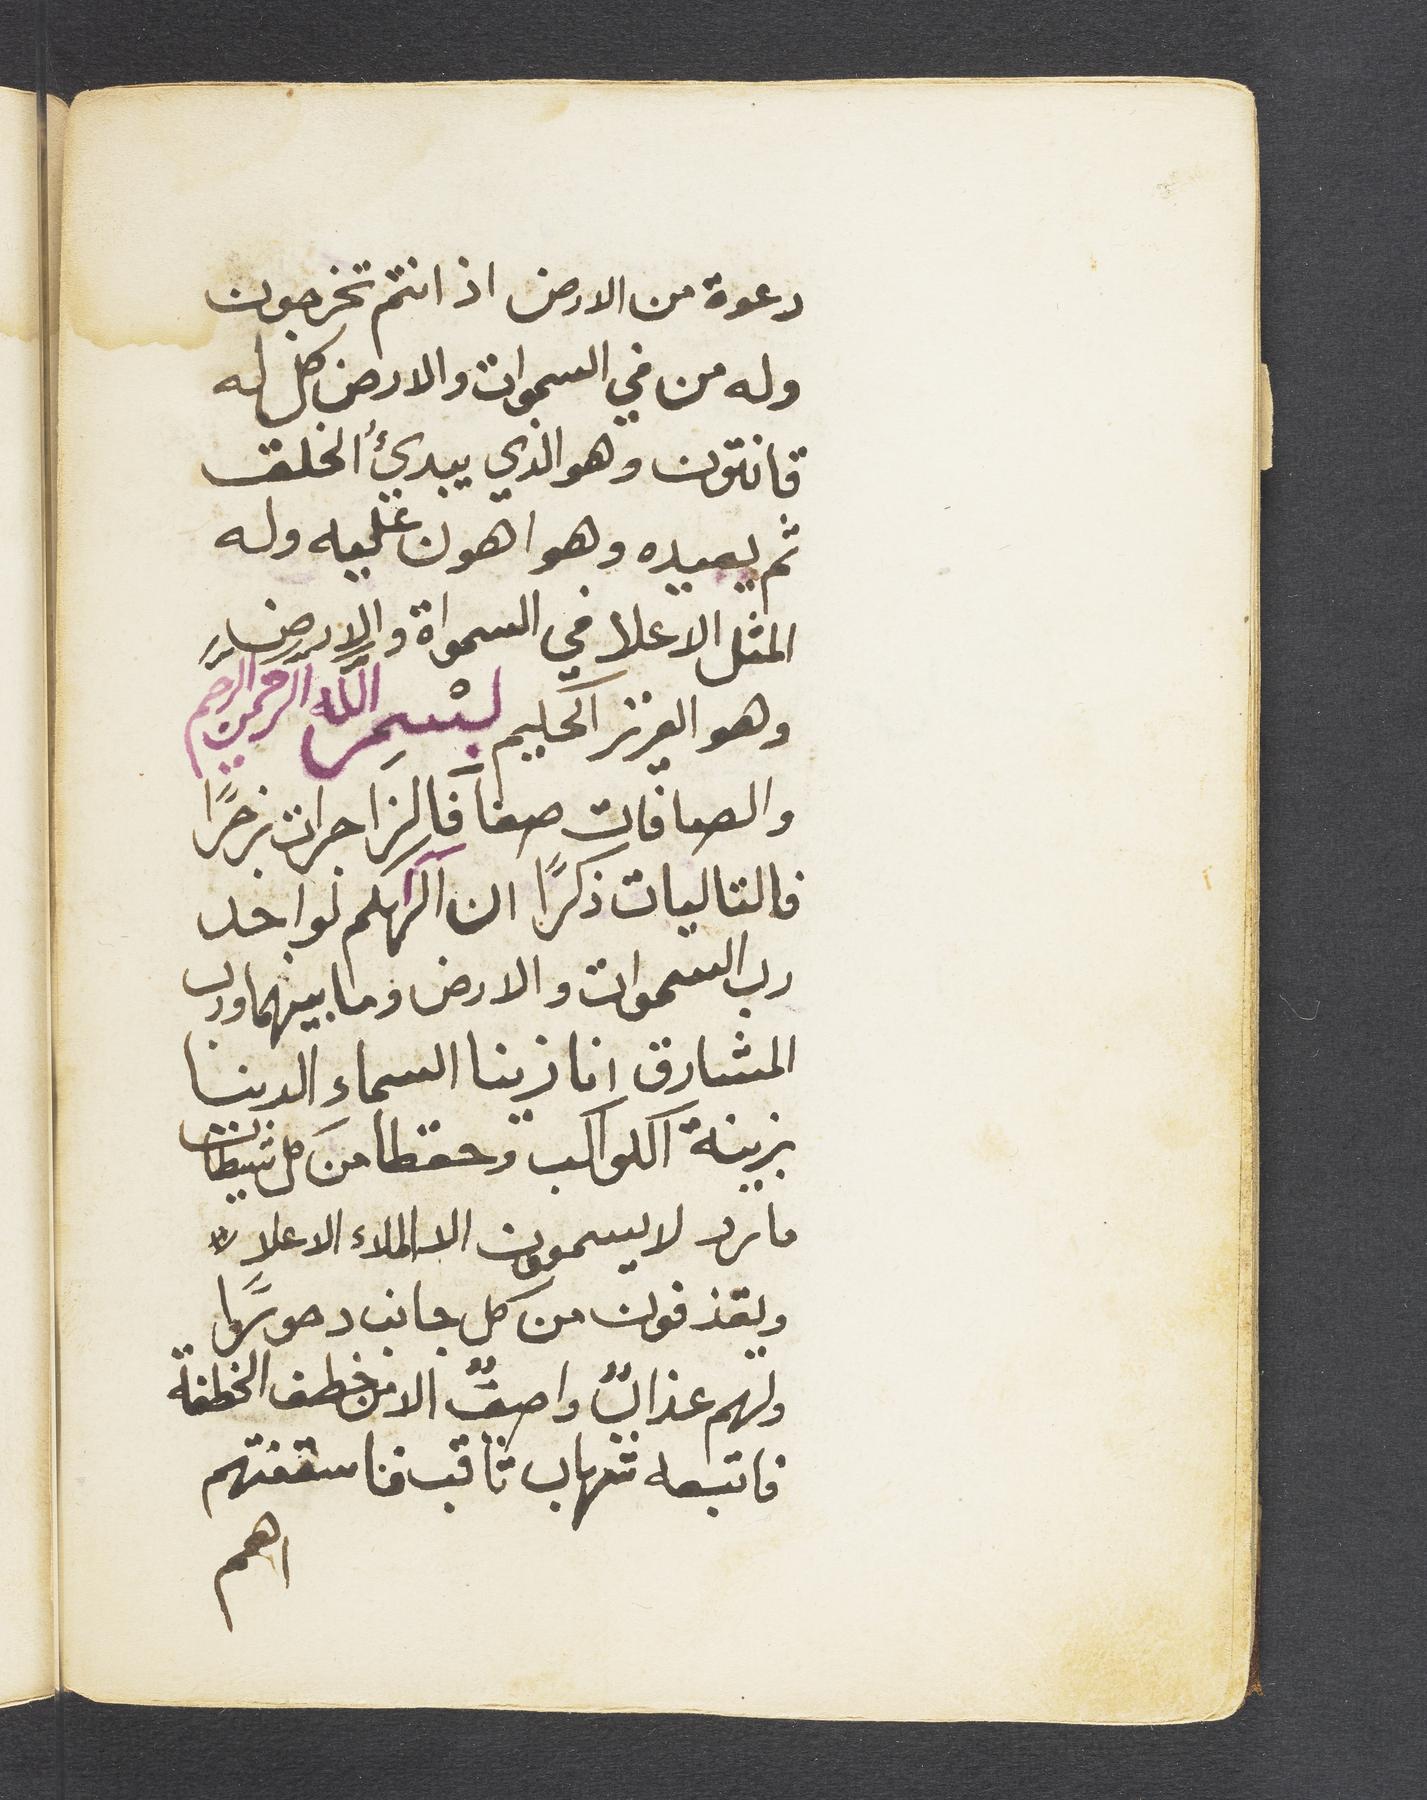 دعوة من الارض اذا انتم تخرجون
وله من في السموات والارض كل له
قانتون وهو الذي يبدئُ الخلق
ثم يعيده وهو اهون عليه وله
المثل الاعلا في السمواة والارض
وهو العزيز الحكيم بسم الله الرحمن الرحيم
والصافات صفا فالزاجرات زجرًا
فالتاليات ذكرًا ان الهكم لواحد
رب السموات والارض وما بينهما ورب
المشارق انا زينا السماء الدينا
بزينة الكواكب وحفظا من كل شيطان
مارد لا يسمعون الا الملاء الاعلا
ويقذفون من كل جانب دحورًا
ولهم عذابٌ واصبٌ الا من خطف الخطفة
فاتبعه شهاب ثاقب فاستفتهم
اهم